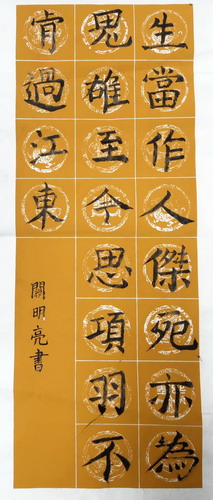 生當作人傑死亦為
鬼雄至今思項羽不
肯過江東
關明亮書